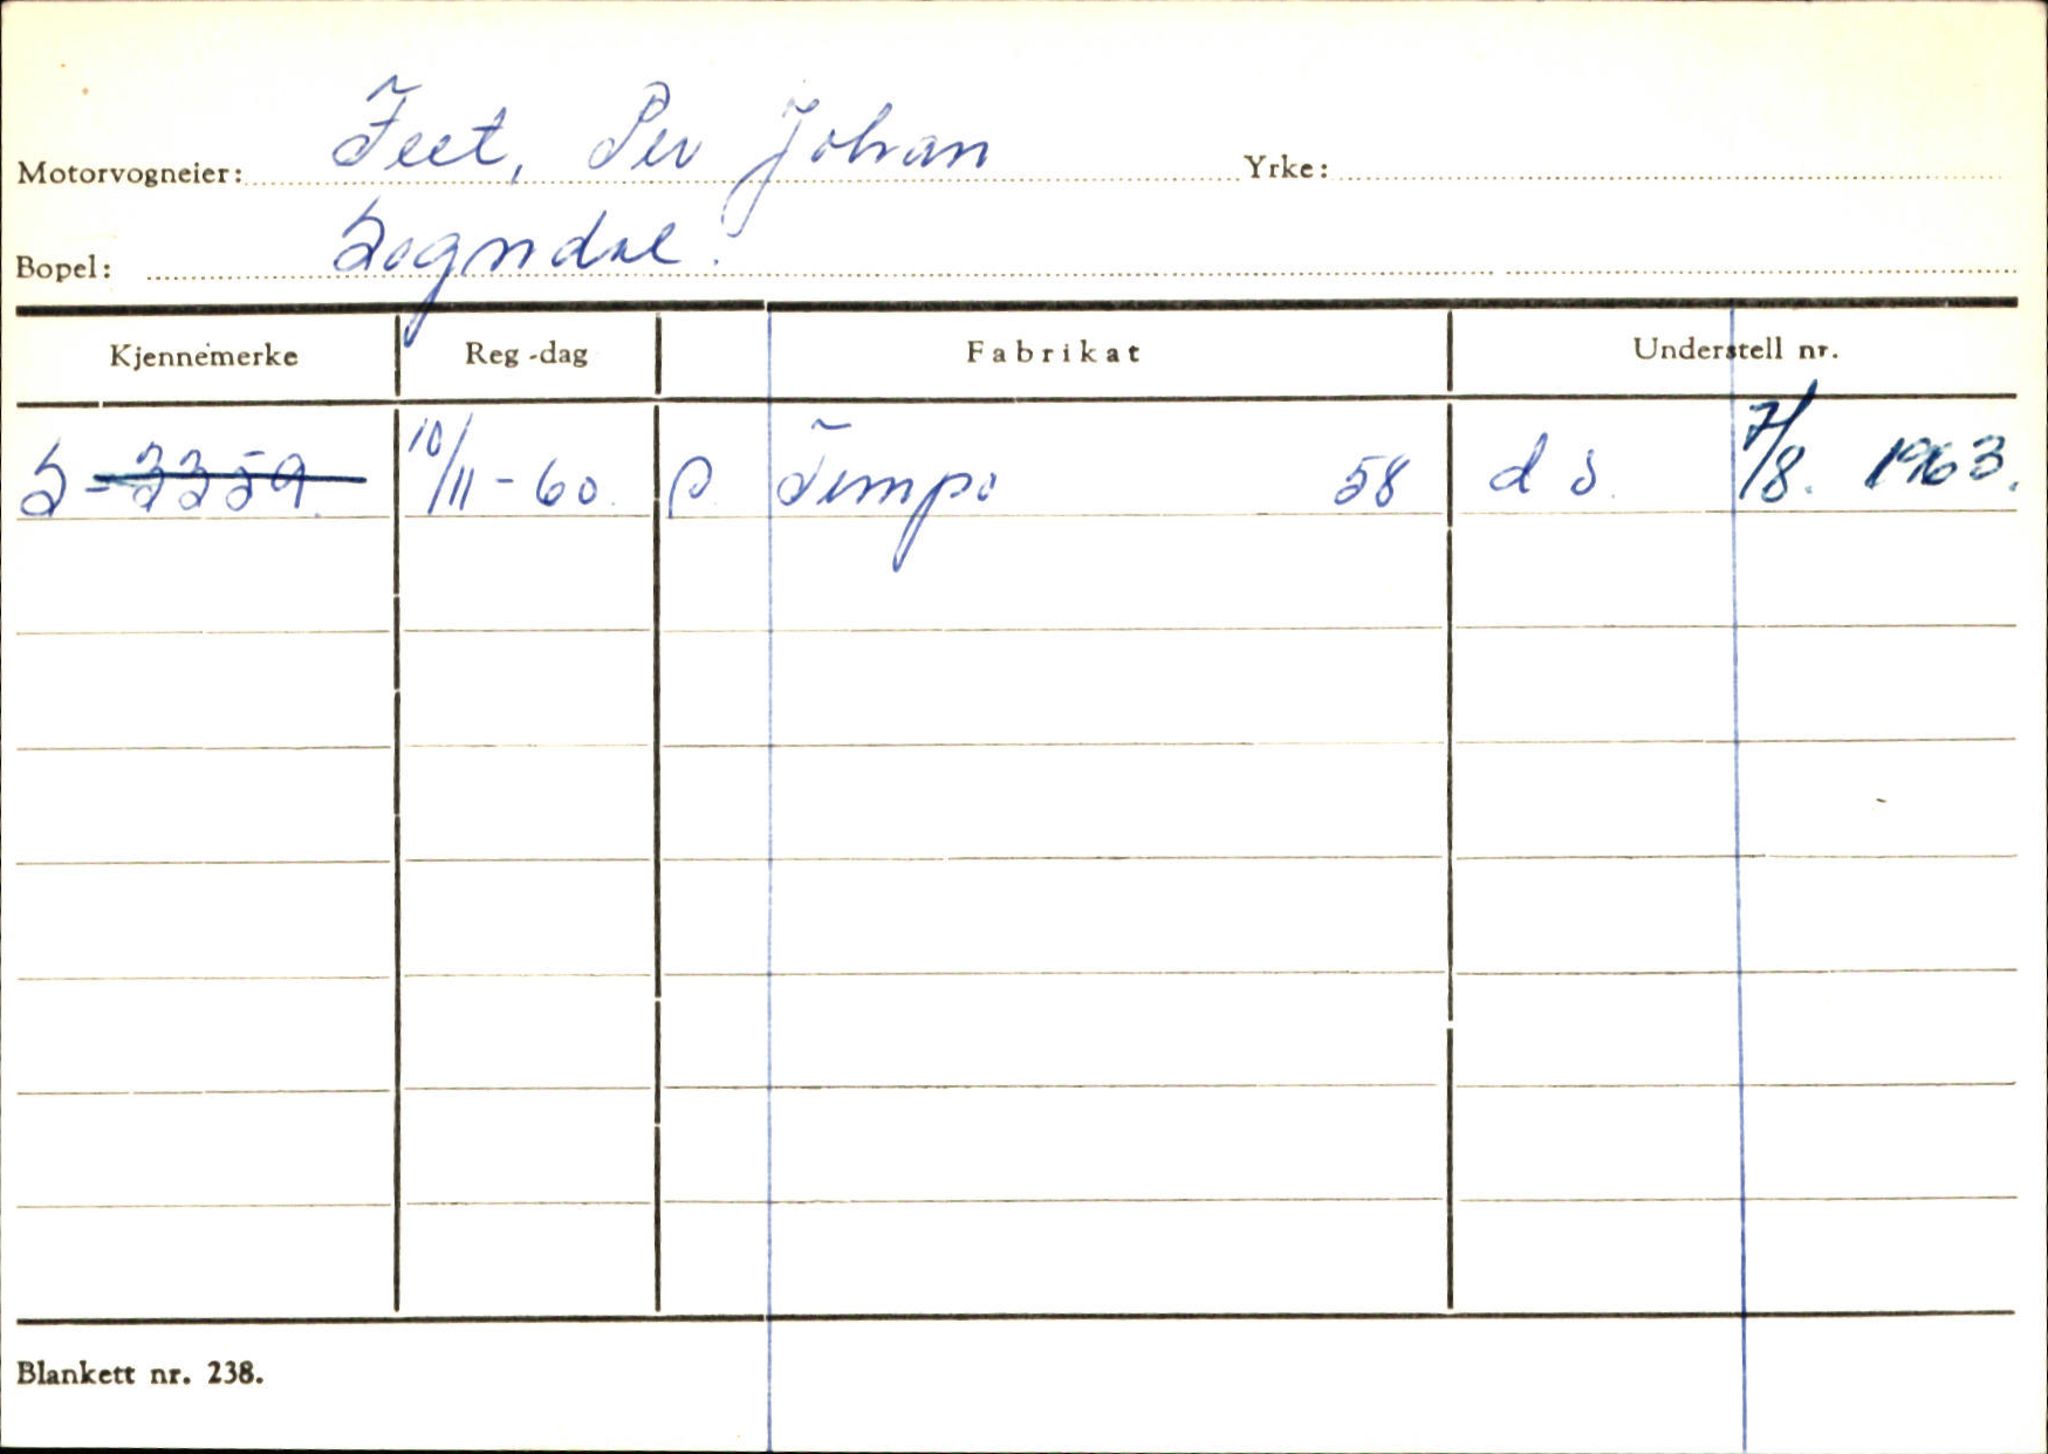 Motorvogneier: Feet, Per Johan Yrke:
Bopel: Sogndal.
Kjennemerke Reg-dag Fabrikat Understell nr.
S-3359. 10/11-60. P Tempo 58 d s. 7/8. 1963.
Blankett nr. 238.